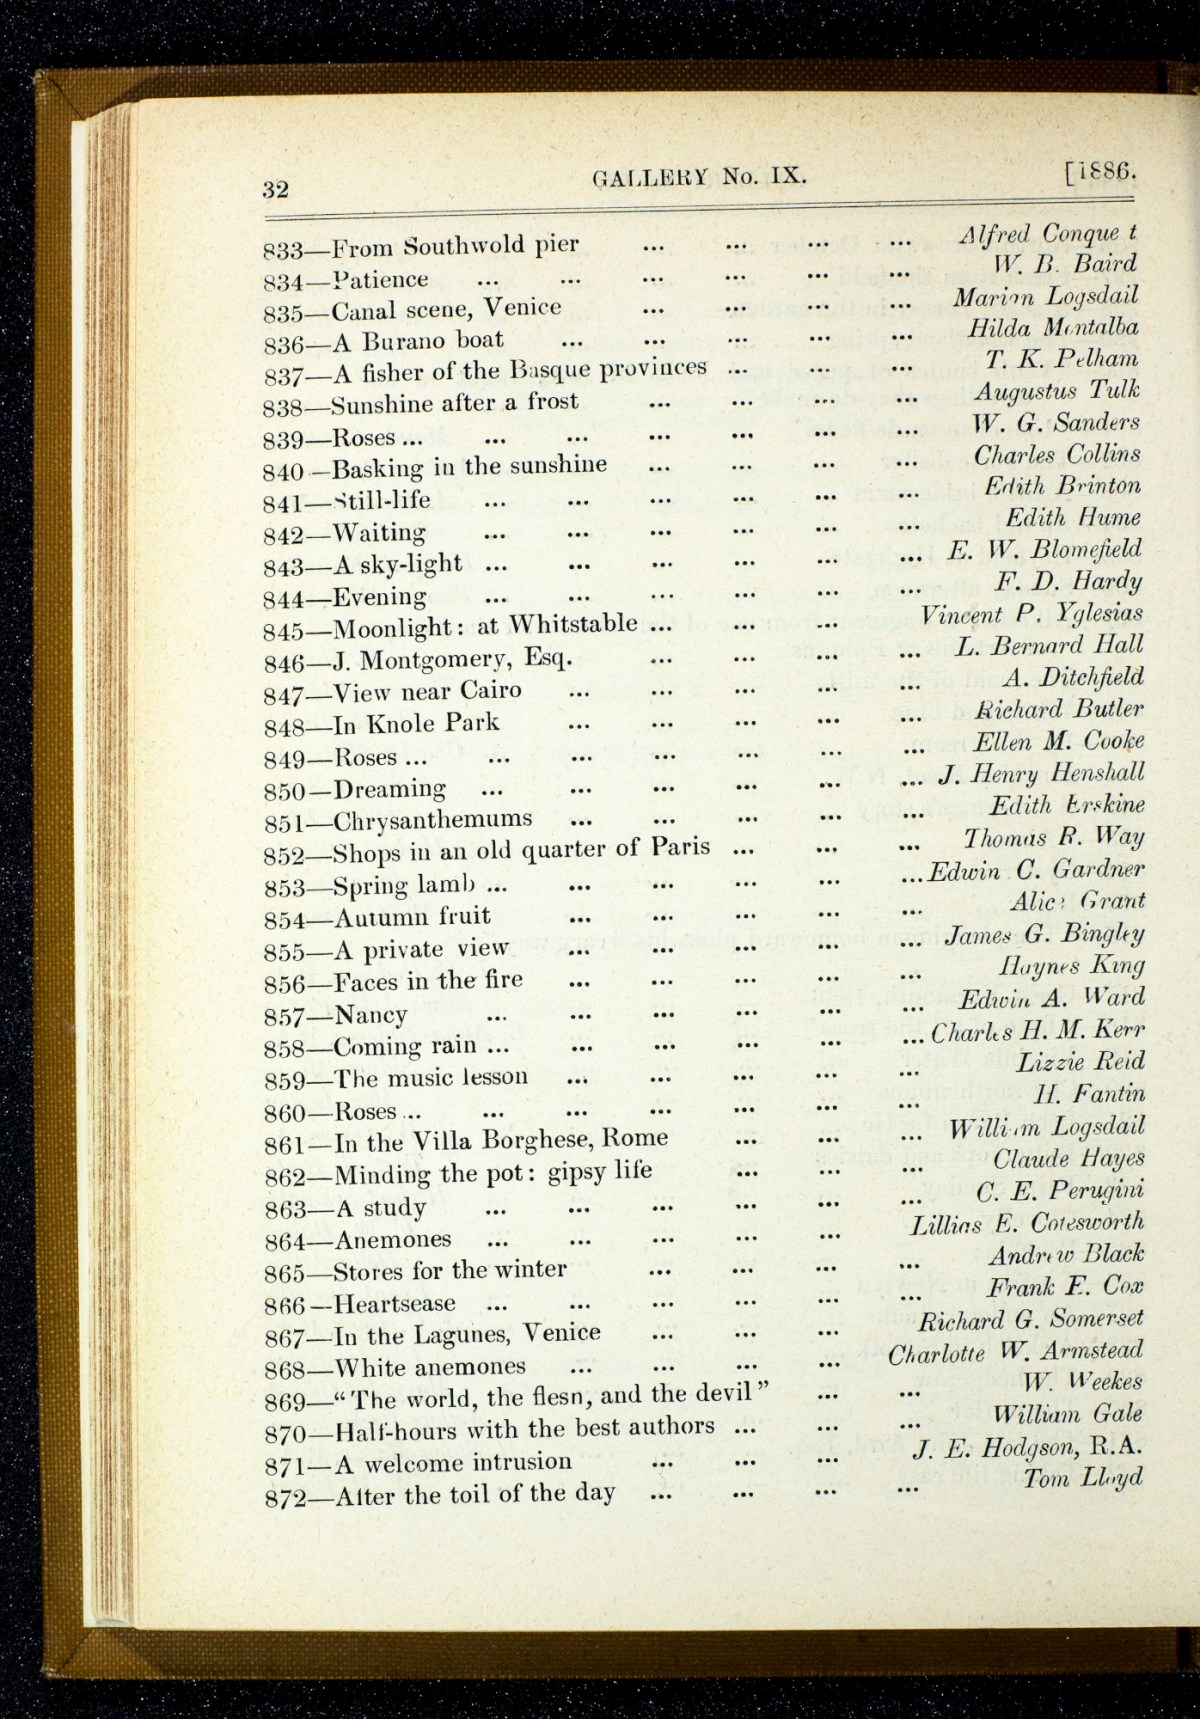 32 GALLERY No. IX. [1886.
833—From Southwold pier ... ... ... ... Alfred Conque t
834—Patience ... ... ... ... ... ... W. B. Baird
835—Canal scene, Venice ... ... ... ... Marion Logsdail
836—A Burano boat ... ... ... ... ... Hilda Montalba
837—A fisher of the Basque provinces ... ... ... T. K. Pelham
838—Sunshine after a frost ... ... ... ... Augustus Tulk
839—Roses ... ... ... ... ... ... ... W. G. Sanders
840—Basking in the sunshine ... ... ... ... Charles Collins
841—Still-life ... ... ... ... ... ... Edith Brinton
842—Waiting ... ... ... ... ... ... Edith Hume
843—A sky-light ... ... ... ... ... ... E. W. Blomefield
844—Evening ... ... ... ... ... ... F. D. Hardy
845—Moonlight: at Whitstable ... ... ... Vincent P. Yglesias
846—J. Montgomery, Esq. ... ... ... ... L. Bernard Hall
847—View near Cairo ... ... ... ... ... A. Ditchfield
848—In Knole Park ... ... ... ... ... Richard Butler
849—Roses ... ... ... ... ... ... ... Ellen M. Cooke
850—Dreaming ... ... ... ... ... ... J. Henry Henshall
851—Chrysanthemums ... ... ... ... ... Edith Erskine
852—Shops in an old quarter of Paris ... ... ... Thomas R. Way
853—Spring lamb ... ... ... ... ... ... Edwin C. Gardner
854—Autumn fruit ... ... ... ... ... Alice Grant
855—A private view ... ... ... ... ... James G. Bingley
856—Faces in the fire ... ... ... ... ... Haynes King
857—Nancy ... ... ... ... ... ... Edwin A. Ward
858—Coming rain ... ... ... ... ... ... Charles H. M. Kerr
859—The music lesson ... ... ... ... ... Lizzie Reid
860—Roses ... ... ... ... ... ... ... H. Fantin
861—In the Villa Borghese, Rome ... ... ... William Logsdail
862—Minding the pot: gipsy life ... ... ... Claude Hayes
863—A study ... ... ... ... ... ... C. E. Perugini
864—Anemones ... ... ... ... ... Lillias E. Cotesworth
865—Stores for the winter ... ... ... ... Andrew Black
866—Heartsease ... ... ... ... ... ... Frank E. Cox
867—In the Lagunes, Venice ... ... ... Richard G. Somerset
868—White anemones ... ... ... ... Charlotte W. Armstead
869—“The world, the flesh, and the devil” ... ... W. Weekes
870—Half-hours with the best authors ... ... ... William Gale
871—A welcome intrusion ... ... ... J. E. Hodgson, R.A.
872—After the toil of the day ... ... ... ... Tom Lloyd